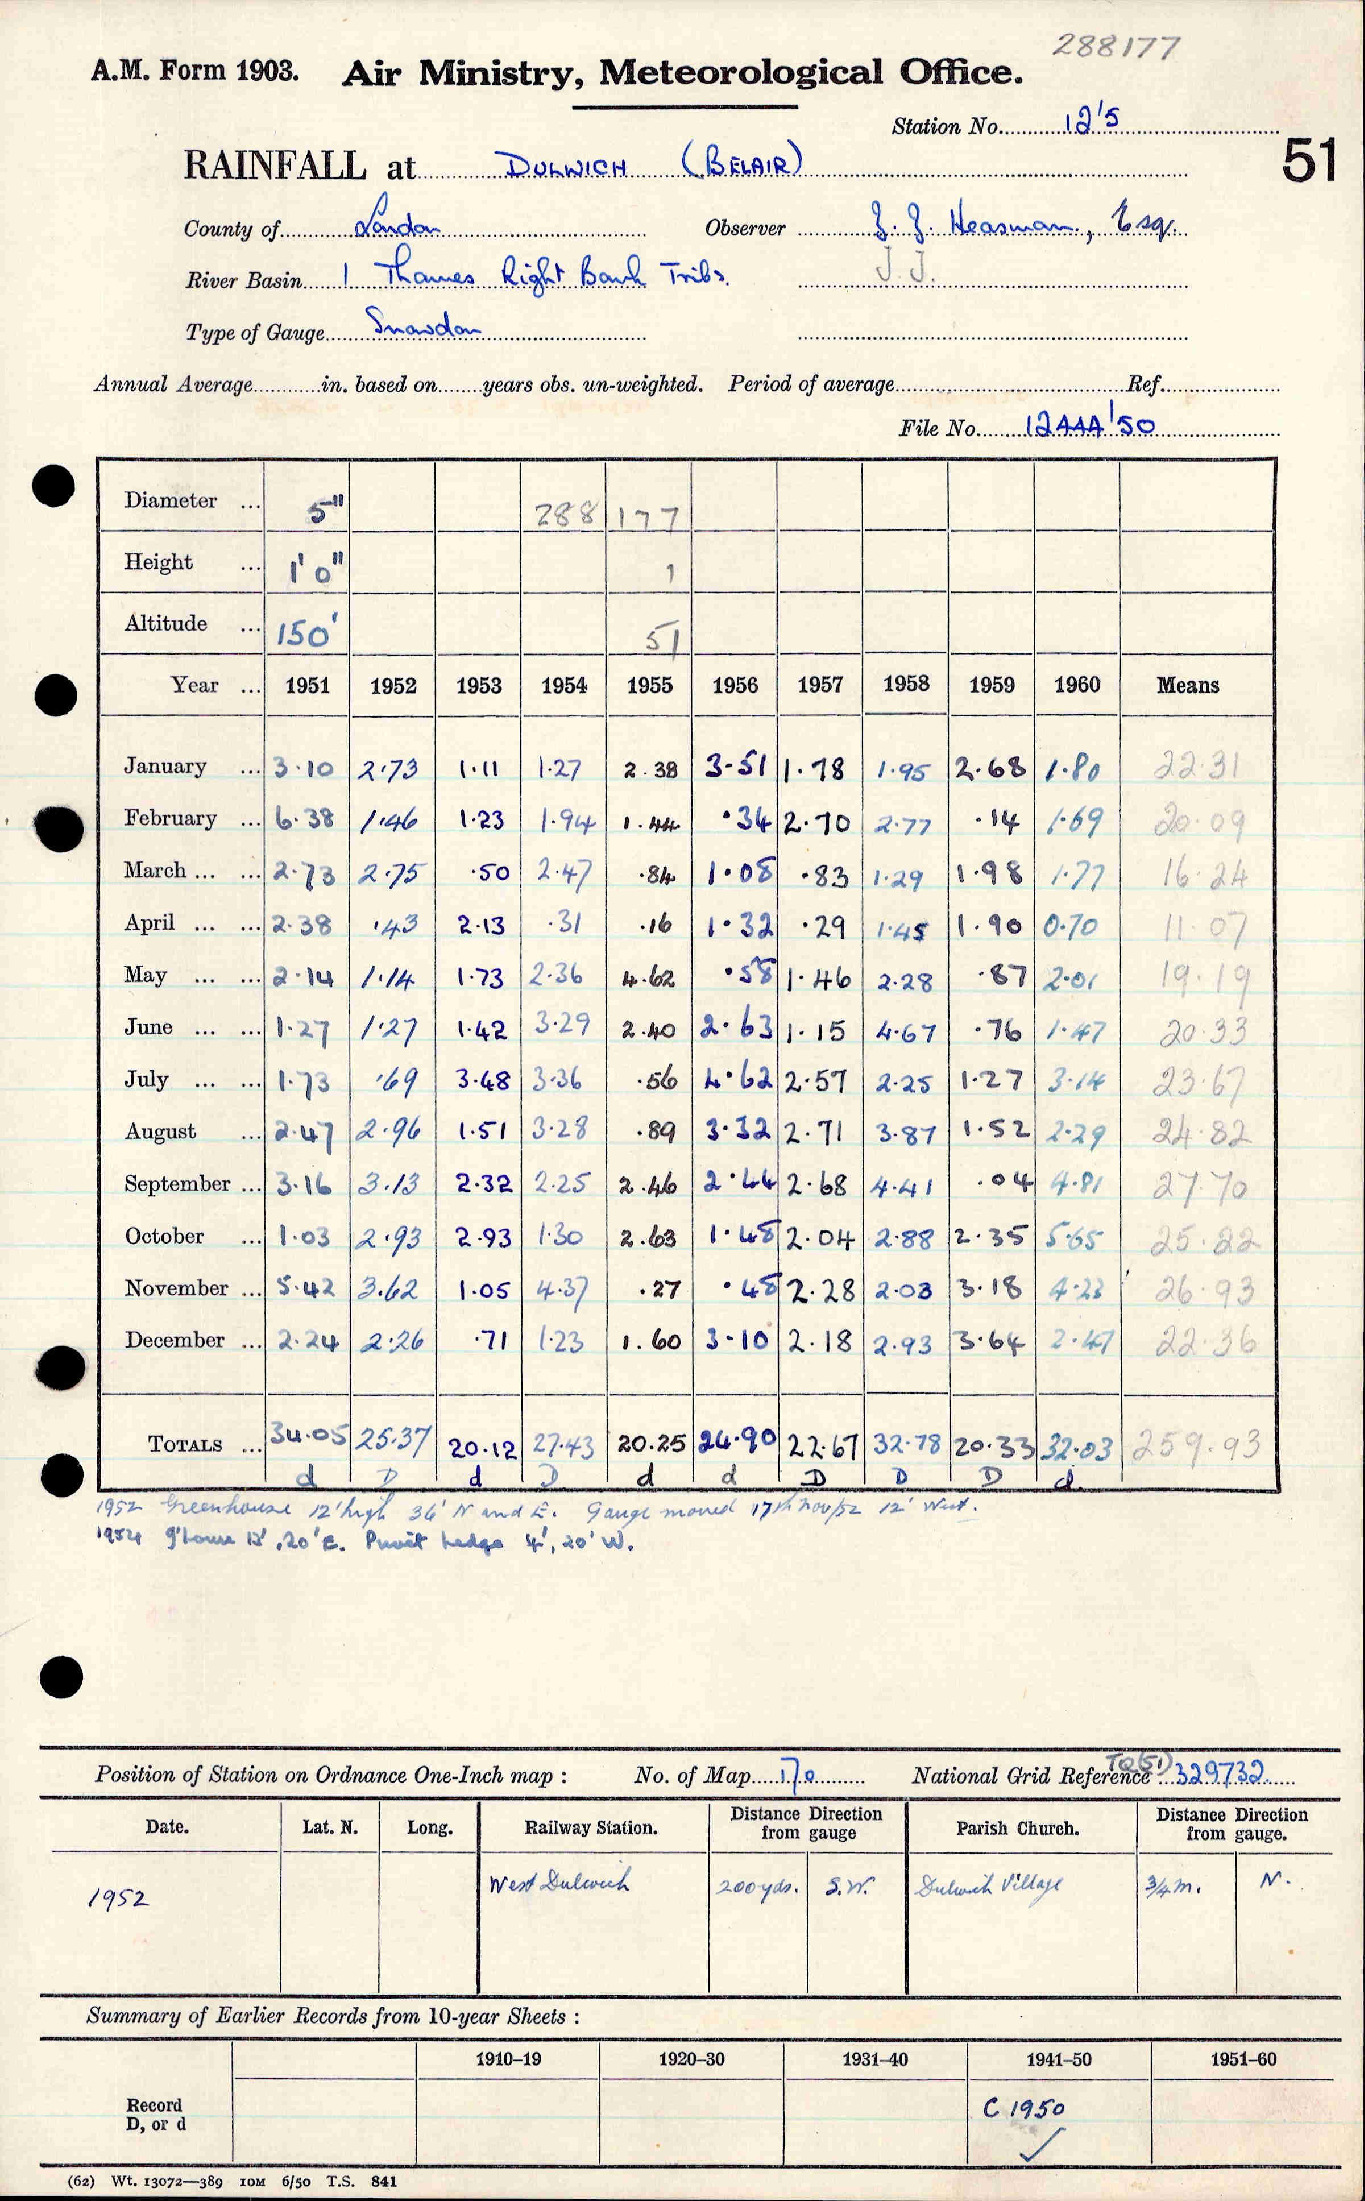 288177
A.M. Form 1903. Air Ministry, Meteorological Office.
Station No. 12'5
51
RAINFALL at DULWICH (BELAIR)
County of London Observer J. J. Heasman, Esq.
River Basin 1 Thames Right Bank Tribs. J.J.
Type of Gauge Snowdon
Annual Average in. based on years obs. un-weighted. Period of average Ref.
File No. 12AAA'50
Diameter ... 5" 288 177
Height ... 1' 0" 1
Altitude ... 150' 51
Year ... 1951 1952 1953 1954 1955 1956 1957 1958 1959 1960 Means
January ... 3.10 2.73 1.11 1.27 2.38 3.51 1.78 1.95 2.68 1.80 22.31
February ... 6.38 1.46 1.23 1.94 1.44 .34 2.70 2.77 .14 1.69 20.09
March ... ... 2.73 2.75 .50 2.47 .84 1.08 .83 1.29 1.98 1.77 16.24
April ... ... 2.38 .43 2.13 .31 .16 1.32 .29 1.45 1.90 0.70 11.07
May ... ... 2.14 1.14 1.73 2.36 4.62 .58 1.46 2.28 .87 2.01 19.19
June ... ... 1.27 1.27 1.42 3.29 2.40 2.63 1.15 4.67 .76 1.47 20.33
July ... ... 1.73 .69 3.48 3.36 .56 4.62 2.57 2.25 1.27 3.14 23.67
August ... 2.47 2.96 1.51 3.28 .89 3.32 2.71 3.87 1.52 2.29 24.82
September ... 3.16 3.13 2.32 2.25 2.46 2.44 2.68 4.41 .04 4.81 27.70
October ... 1.03 2.93 2.93 1.30 2.63 1.48 2.04 2.88 2.35 5.65 25.22
November ... 5.42 3.62 1.05 4.37 .27 .48 2.28 2.03 3.18 4.23 26.93
December ... 2.24 2.26 .71 1.23 1.60 3.10 2.18 2.93 3.64 2.47 22.36
TOTALS ... 34.05 25.37 20.12 27.43 20.25 24.90 22.67 32.78 20.33 32.03 259.93
d D d D d d D D D d
1952 Greenhouse 12' high 36' N and E. Gauge moved 17th Nov/52 12' West.
1954 g'house 12', 20' E. Privet hedge 4', 20' W.
Position of Station on Ordnance One-Inch map : No. of Map 170 National Grid Reference TQ(51) 329732
Date. Lat. N. Long. Railway Station. Distance Direction from gauge Parish Church. Distance Direction from gauge.
1952 West Dulwich 200 yds. S.W. Dulwich Village 3/4 m. N.
Summary of Earlier Records from 10-year Sheets :
1910–19 1920–30 1931–40 1941–50 1951–60
Record D, or d C 1950 ✓
(62) Wt. 13072—389 10M 6/50 T.S. 841